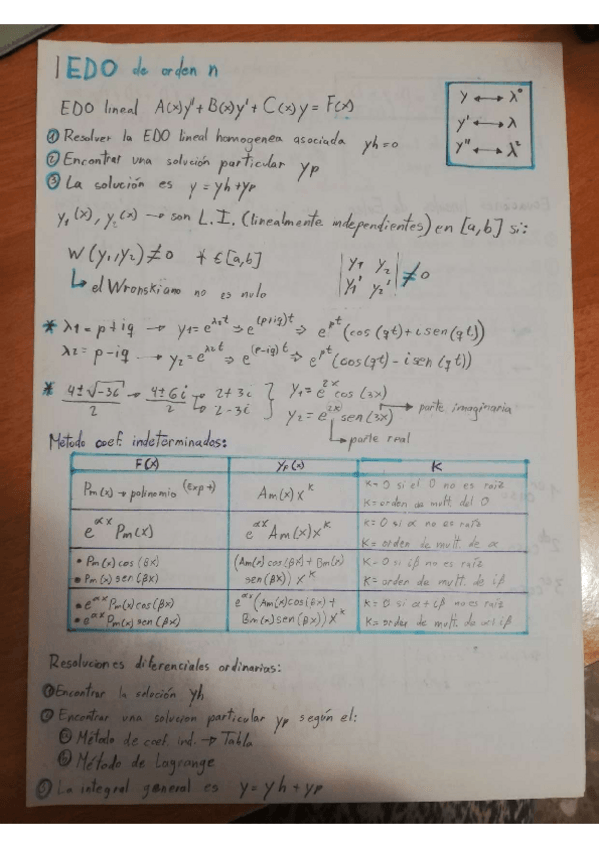 EDO de orden n
y ⟷ λ⁰
y' ⟷ λ
y'' ⟷ λ²
EDO lineal A(x)y''+B(x)y'+C(x)y = F(x)
① Resolver la EDO lineal homogenea asociada yh=0
② Encontrar una solución particular yp
③ La solución es y = yh+yp
y₁(x), y₂(x) → son L.I. (linealmente independientes) en [a,b] si:
W(y₁,y₂)≠0 ∀ ∈[a,b]
|y₁ y₂|
|y₁' y₂'| ≠0
↳ el Wronskiano no es nulo
* λ1 = p+iq → y₁=e^λ₁t ⇒ e^(p+iq)t ⇒ e^pt (cos(qt)+i sen(qt))
λ2 = p-iq → y₂=e^λ₂t ⇒ e^(p-iq)t ⇒ e^pt (cos(qt)-i sen(qt))
* 4±√-36 / 2 → 4±6i / 2 → 2+3i } y₁=e^2x cos(3x)
2-3i } y₂=e^2x sen(3x) → parte imaginaria
↳ parte real
Método coef. indeterminados:
F(x) yp(x) K
Pm(x) → polinomio Am(x)x^K K=0 si el 0 no es raíz
K=orden de mult. del 0
e^αx Pm(x) e^αx Am(x)x^K K=0 si α no es raíz
K=orden de mult. de α
• Pm(x)cos(βx) (Am(x)cos(βx)+Bm(x) K=0 si iβ no es raíz
• Pm(x)sen(βx) sen(βx))x^K K=orden de mult. de iβ
• e^αx Pm(x)cos(βx) e^αx(Am(x)cos(βx)+ K=0 si α+iβ no es raíz
• e^αx Pm(x)sen(βx) Bm(x)sen(βx))x^K K=order de mult. de α+iβ
Resoluciones diferenciales ordinarias:
① Encontrar la solución yh
② Encontrar una solucion particular yp según el:
ⓐ Método de coef. ind. → Tabla
ⓑ Método de Lagrange
③ La integral general es y=yh+yp